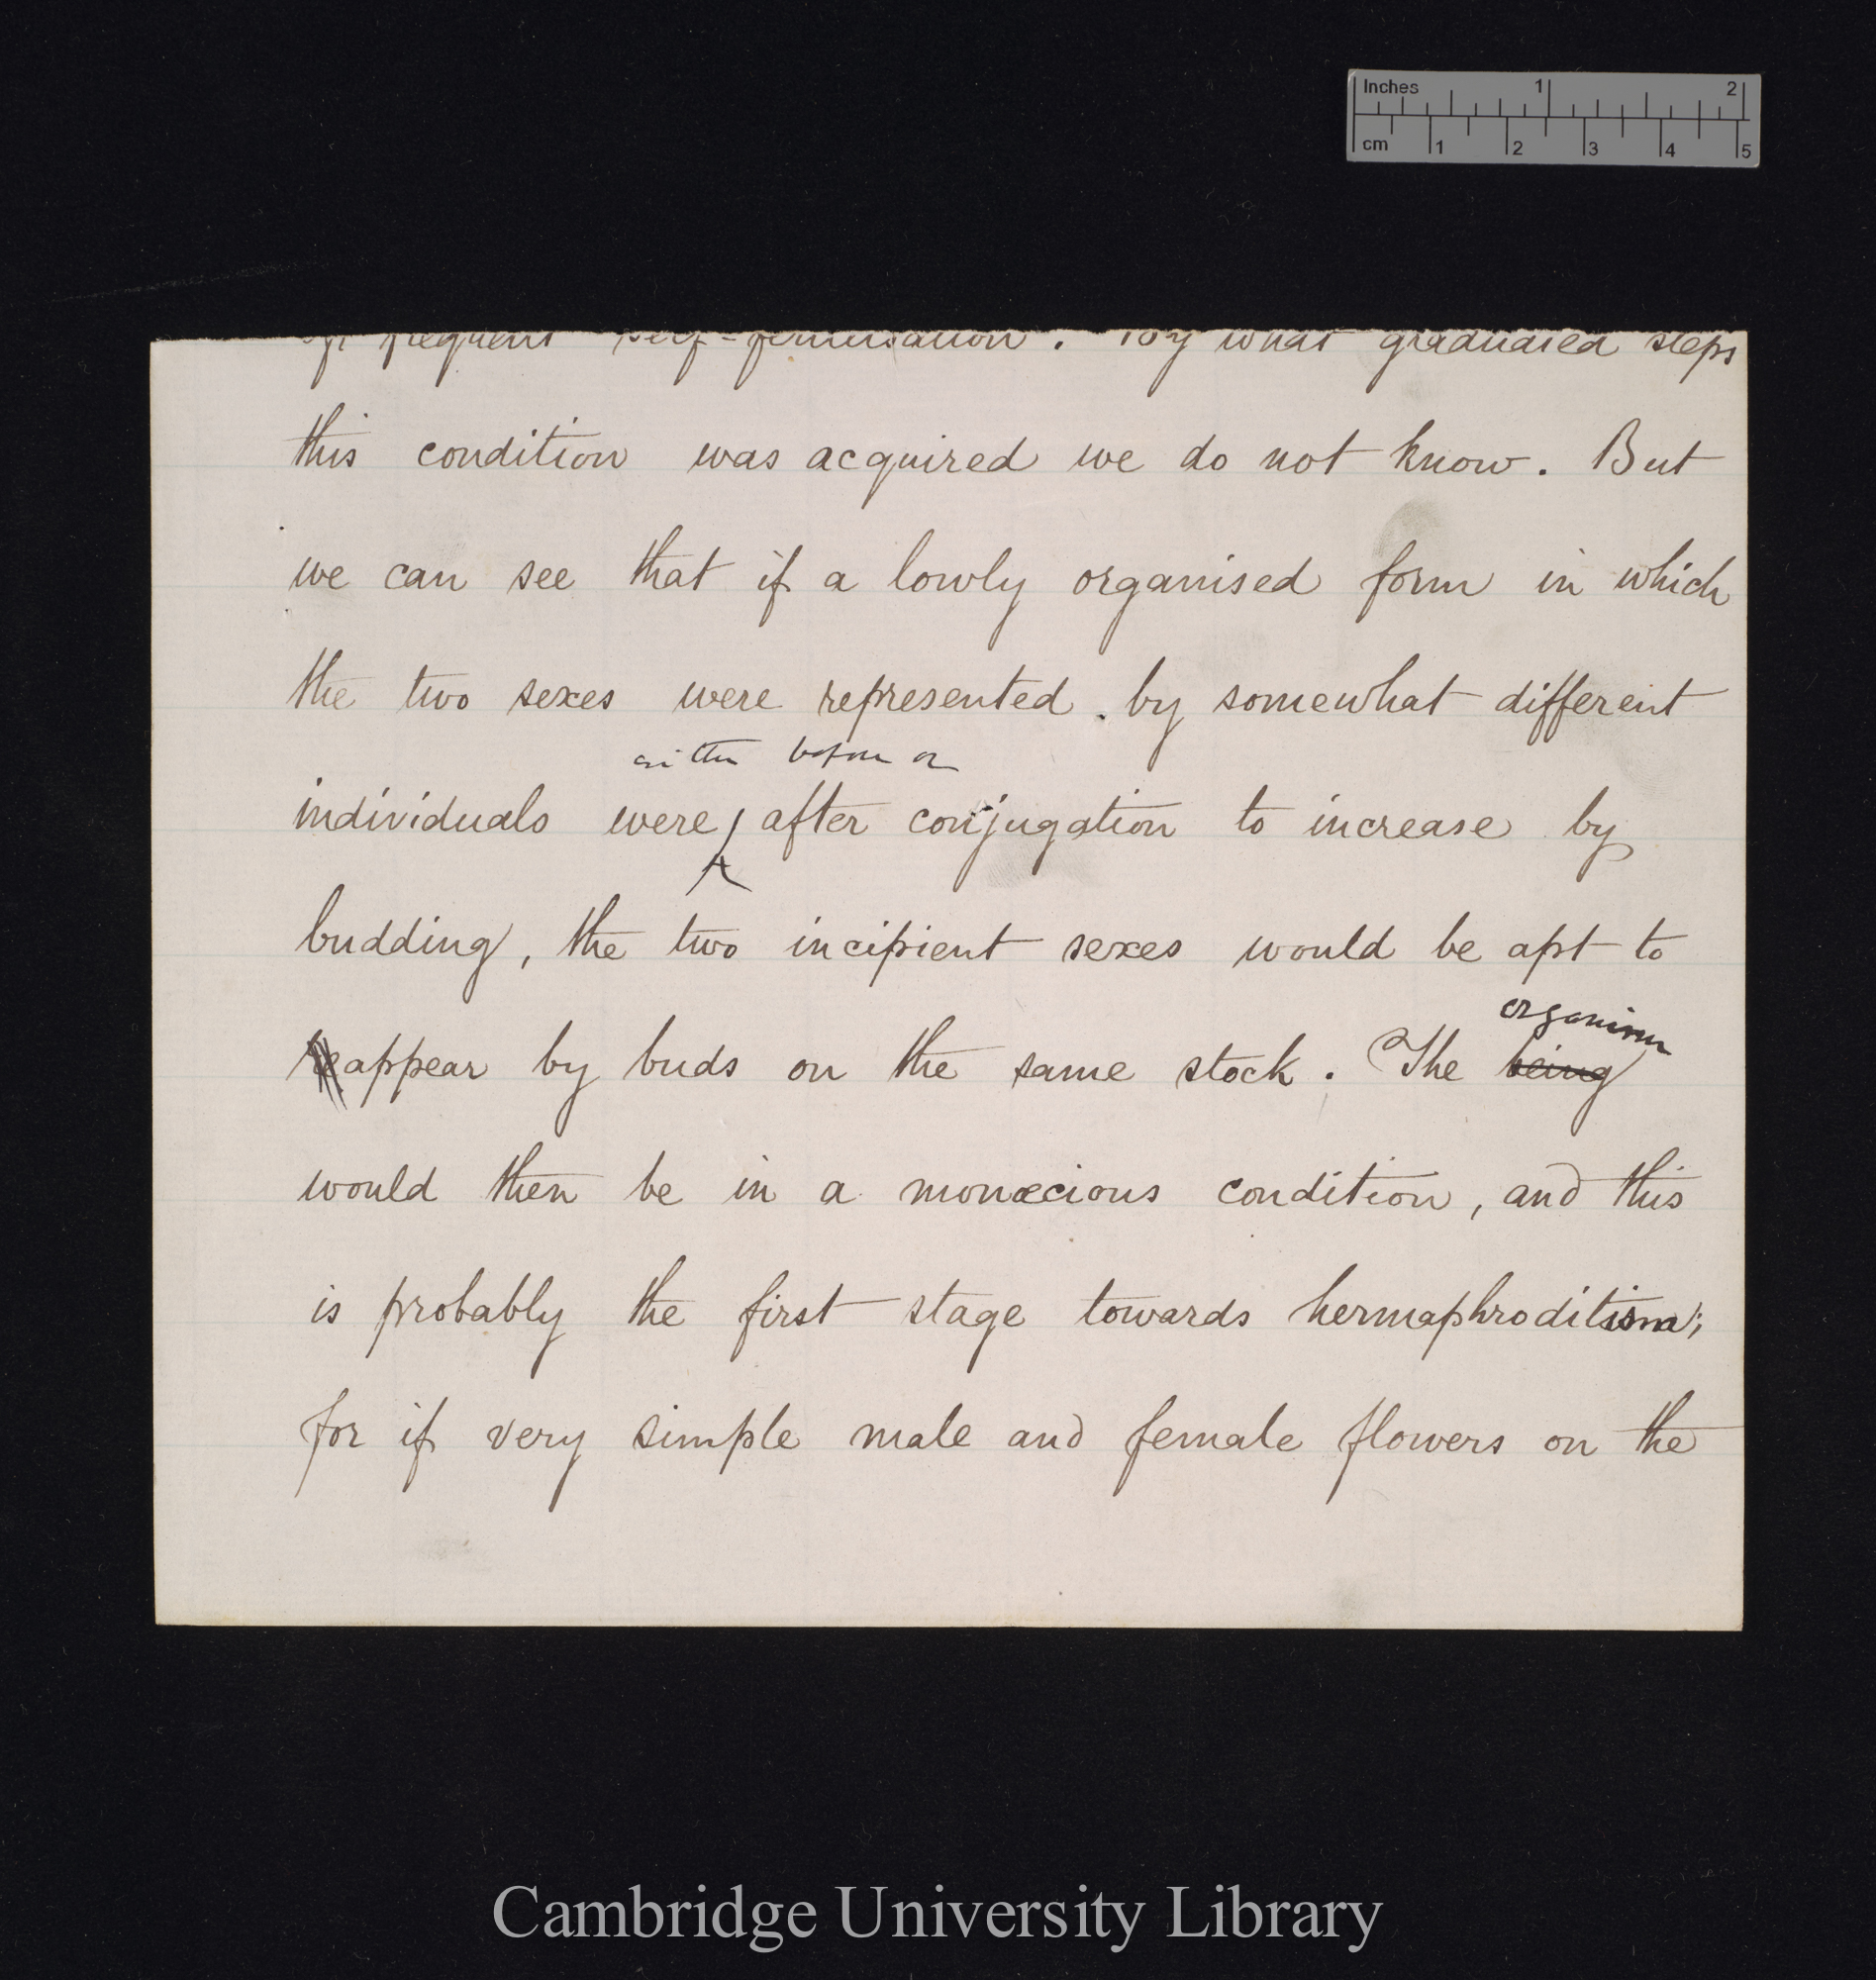 Inches 1 2
cm 1 2 3 4 5
of frequent self-fertilisation. By what graduated steps
this condition was acquired we do not know. But
we can see that if a lowly organised form in which
the two sexes were represented by somewhat different
either before or
individuals were after conjugation to increase by
budding, the two incipient sexes would be apt to
organism
reappear by buds on the same stock. The being
would then be in a monœcious condition, and this
is probably the first stage towards hermaphroditism;
for if very simple male and female flowers on the
Cambridge University Library